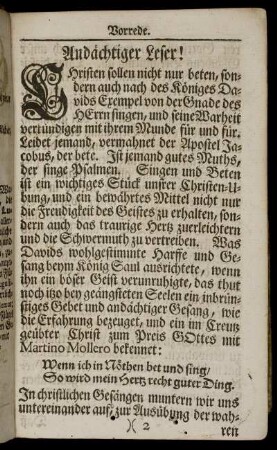 Vorrede.
Andächtiger Leser!
CHristen sollen nicht nur beten, son-
dern auch nach des Königes Da-
vids Exempel von der Gnade des
HErrn singen, und seine Warheit
verkündigen mit ihrem Munde für und für.
Leidet jemand, vermahnet der Apostel Ja-
cobus, der bete. Ist jemand gutes Muths,
der singe Psalmen. Singen und Beten
ist ein wichtiges Stück unsrer Christen-U-
bung, und ein bewährtes Mittel nicht nur
die Freudigkeit des Geistes zu erhalten, son-
dern auch das traurige Hertz zuerleichtern
und die Schwermuth zu vertreiben. Was
Davids wohlgestimmte Harffe und Ge-
sang beym König Saul ausrichtete, wenn
ihn ein böser Geist verunruhigte, das thut
noch itzo bey geängsteten Seelen ein inbrün-
stiges Gebet und andächtiger Gesang, wie
die Erfahrung bezeuget, und ein im Creutz
geübter Christ zum Preis GOttes mit
Martino Mollero bekennet:
Wenn ich in Nöthen bet und sing/
So wird mein Hertz recht guter Ding.
In christlichen Gesängen muntern wir uns
untereinander auf, zur Ausübung der wah-
)( 2
ren